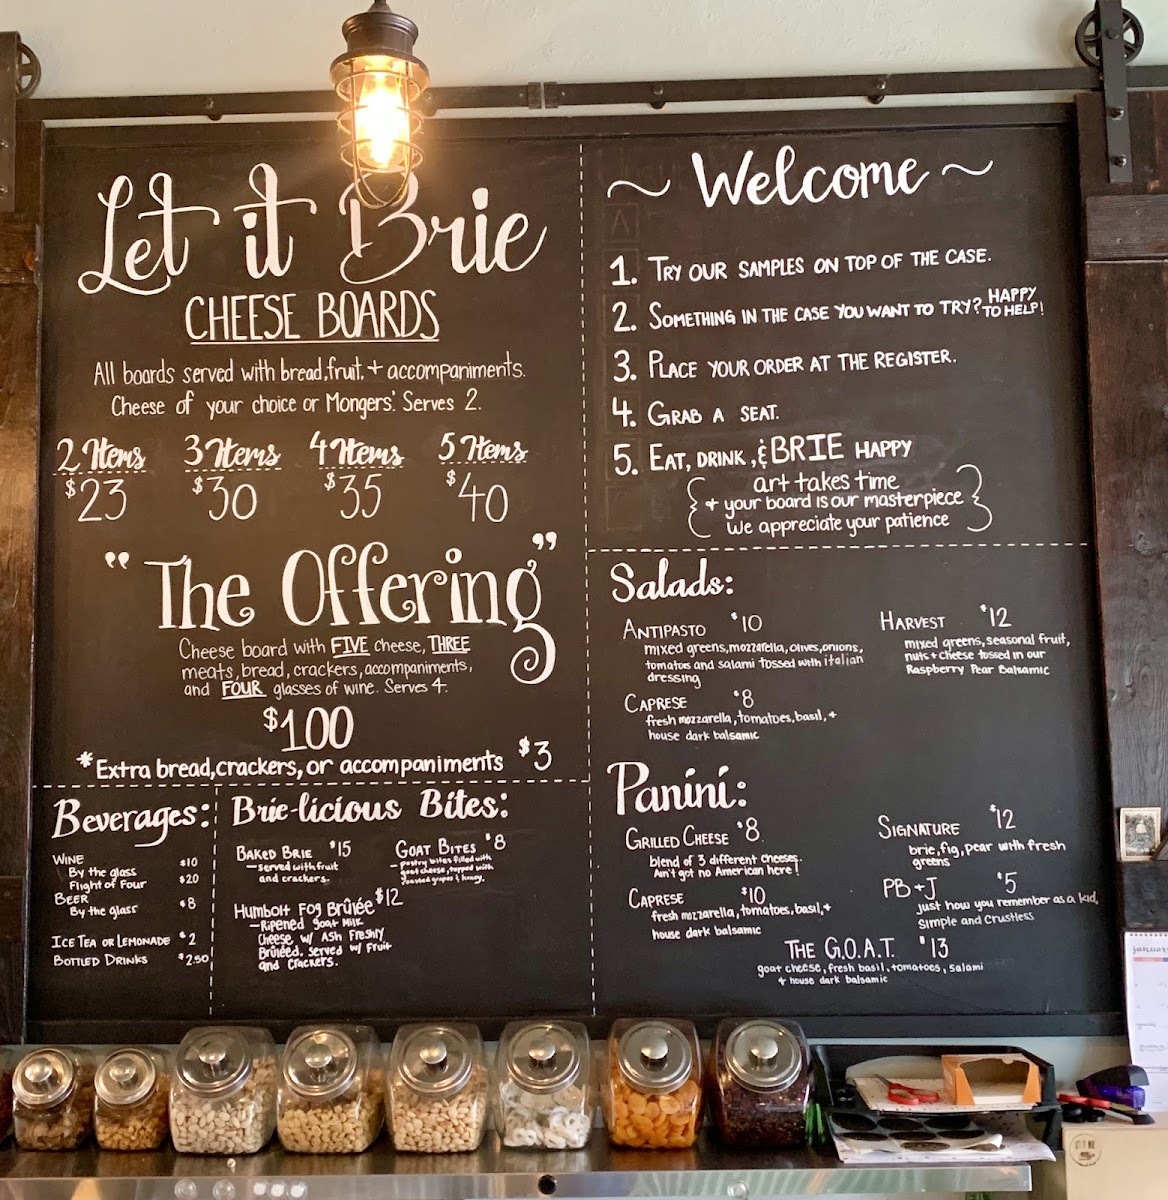 Let it Brie
CHEESE BOARDS
All boards served with bread, fruit, + accompaniments.
Cheese of your choice or Mongers'. Serves 2.
2 Items 3 Items 4 Items 5 Items
$23 $30 $35 $40
"The Offering"
Cheese board with FIVE cheese, THREE
meats, bread, crackers, accompaniments,
and FOUR glasses of wine. Serves 4.
$100
*Extra bread, crackers, or accompaniments $3
Beverages:
WINE
By the glass $10
Flight of Four $20
BEER
By the glass $8
ICE TEA OR LEMONADE $2
BOTTLED DRINKS $2.50
Brie-licious Bites:
BAKED BRIE $15
- served with fruit
and crackers.
GOAT BITES $8
- pastry bites filled with
goat cheese, topped with
toasted grapes & honey.
HUMBOLT FOG BRÛLÉE $12
- Ripened goat milk
cheese w/ Ash Freshly
Brûléed. Served w/ Fruit
and crackers.
~ Welcome ~
1. TRY OUR SAMPLES ON TOP OF THE CASE.
2. SOMETHING IN THE CASE YOU WANT TO TRY? HAPPY TO HELP!
3. PLACE YOUR ORDER AT THE REGISTER.
4. GRAB A SEAT.
5. EAT, DRINK, & BRIE HAPPY
art takes time
+ your board is our masterpiece
We appreciate your patience
Salads:
ANTIPASTO $10
mixed greens, mozzarella, olives, onions,
tomatoes and salami tossed with italian
dressing
HARVEST $12
mixed greens, seasonal fruit,
nuts + cheese tossed in our
Raspberry Pear Balsamic
CAPRESE $8
fresh mozzarella, tomatoes, basil, +
house dark balsamic
Panini:
GRILLED CHEESE $8
blend of 3 different cheeses.
Ain't got no American here!
SIGNATURE $12
brie, fig, pear with fresh
greens
CAPRESE $10
fresh mozzarella, tomatoes, basil, +
house dark balsamic
PB+J $5
just how you remember as a kid,
simple and crustless
THE G.O.A.T. $13
goat cheese, fresh basil, tomatoes, salami
+ house dark balsamic
january